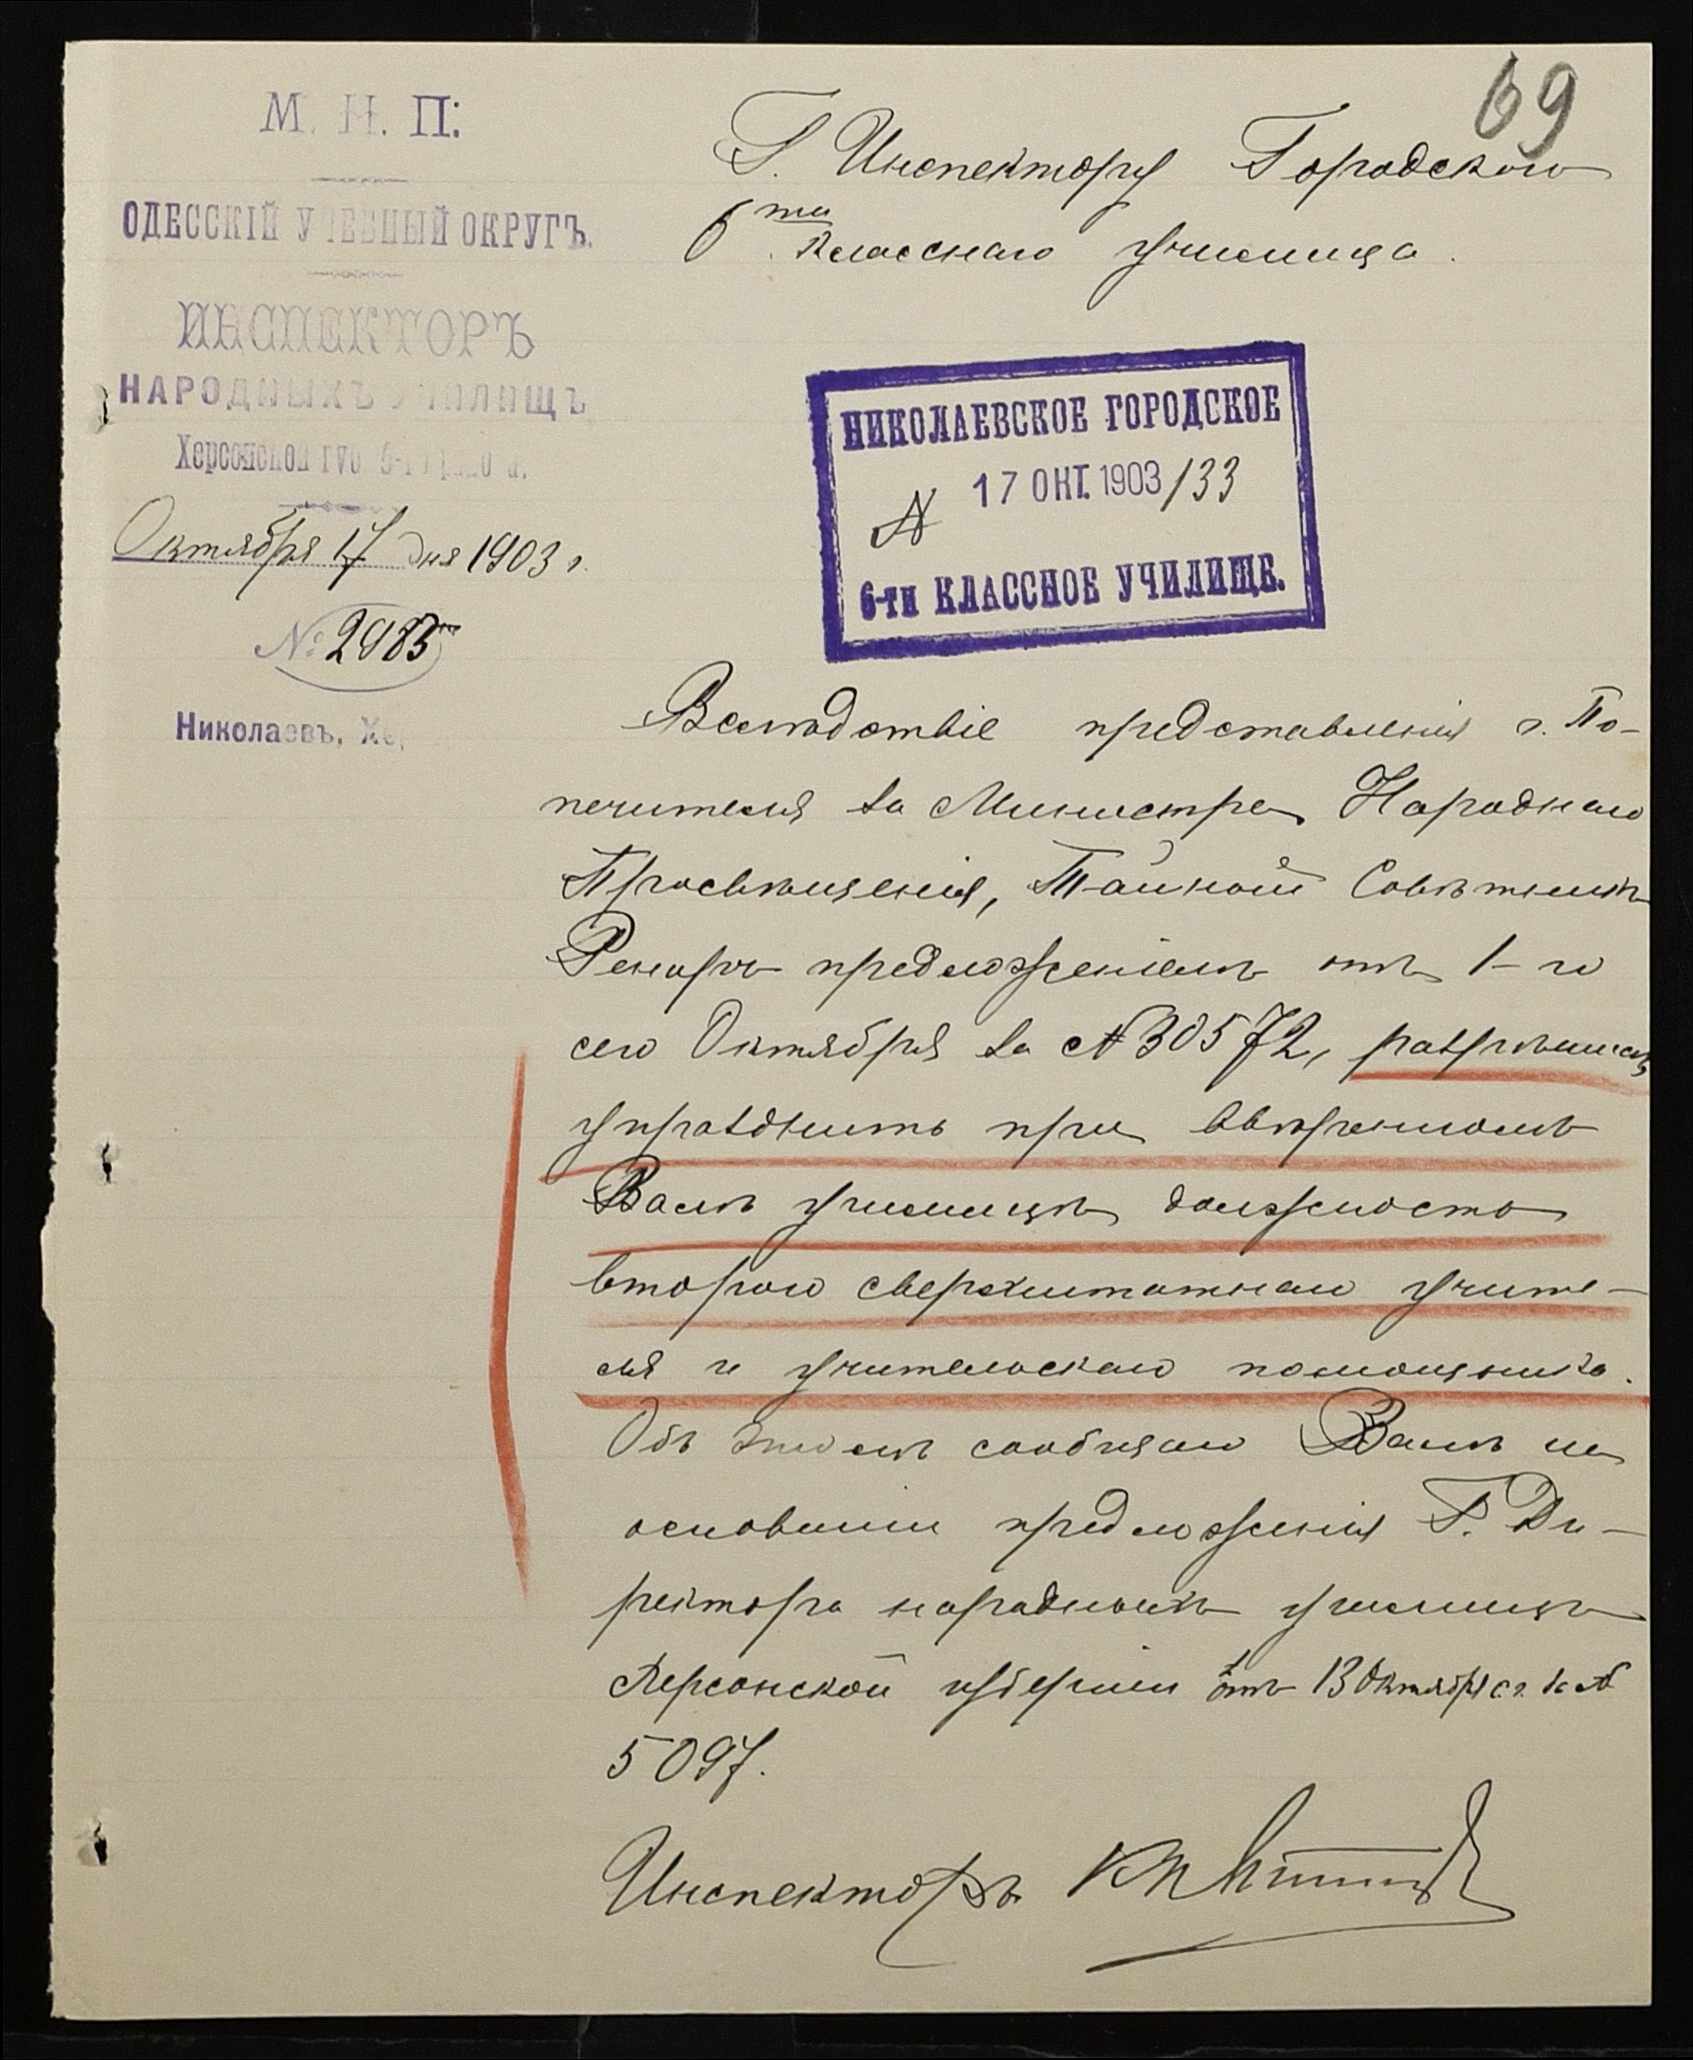 69
М. Н. П.
ОДЕССКІЙ УЧЕБНЫЙ ОКРУГЪ.
ИНСПЕКТОРЪ
НАРОДНЫХЪ УЧИЛИЩЪ
Херсонской губ.
Октября 17 дня 1903 г.
№ 2983
Николаевъ, Хе
Г. Инспектору Городского
6ти классnаго училища.
НИКОЛАЕВСКОЕ ГОРОДСКОЕ
17 ОКТ. 1903 /33
N
6-ти КЛАССНОЕ УЧИЛИЩЕ.
Вслѣдствіе представленія г. По-
печителя за Министра Народнаго
Просвѣщенія, Тайный Совѣтникъ
Ренаръ предложеніемъ отъ 1-го
сего Октября за № 30572, разрѣшилъ
упразднить при ввѣренномъ
Вамъ училищѣ должность
второго сверхштатнаго учите-
ля и учительскаго помощника.
Объ этомъ сообщаю Вамъ на
основаніи предложенія Г. Ди-
ректора народныхъ училищъ
Херсонской губерніи отъ 13 Октября с.г. за №
5097.
Инспекторъ